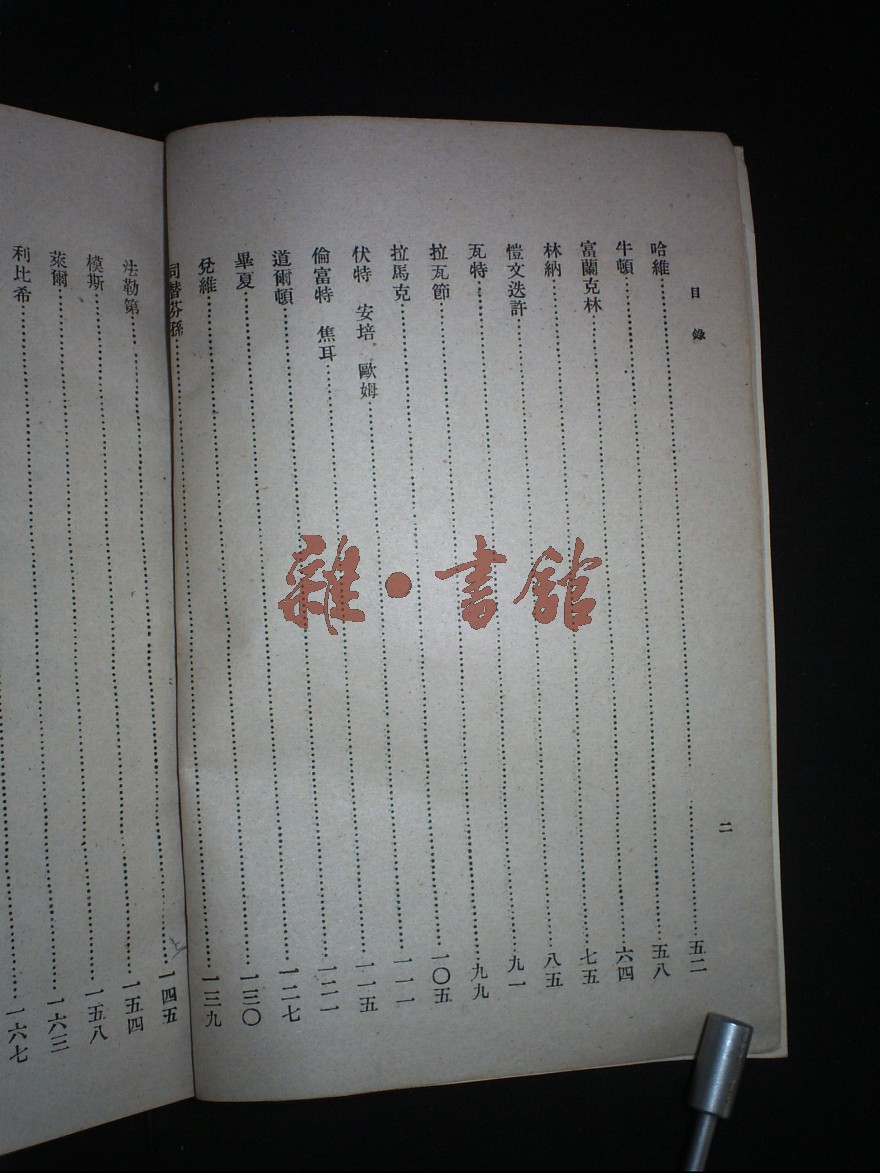 目錄
二
哈維……五二
牛頓……五八
富蘭克林……六四
林納……七五
愷文迭許……八五
瓦特……九一
拉瓦節……九九
拉馬克……一〇五
伏特 安培 歐姆……一一一
倫富特 焦耳……一一五
道爾頓……一二一
畢夏……一二七
兌維……一三〇
司替芬孫……一三九
法勒第……一四五
模斯……一五四
萊爾……一五八
利比希……一六三
……一六七
雜·書館